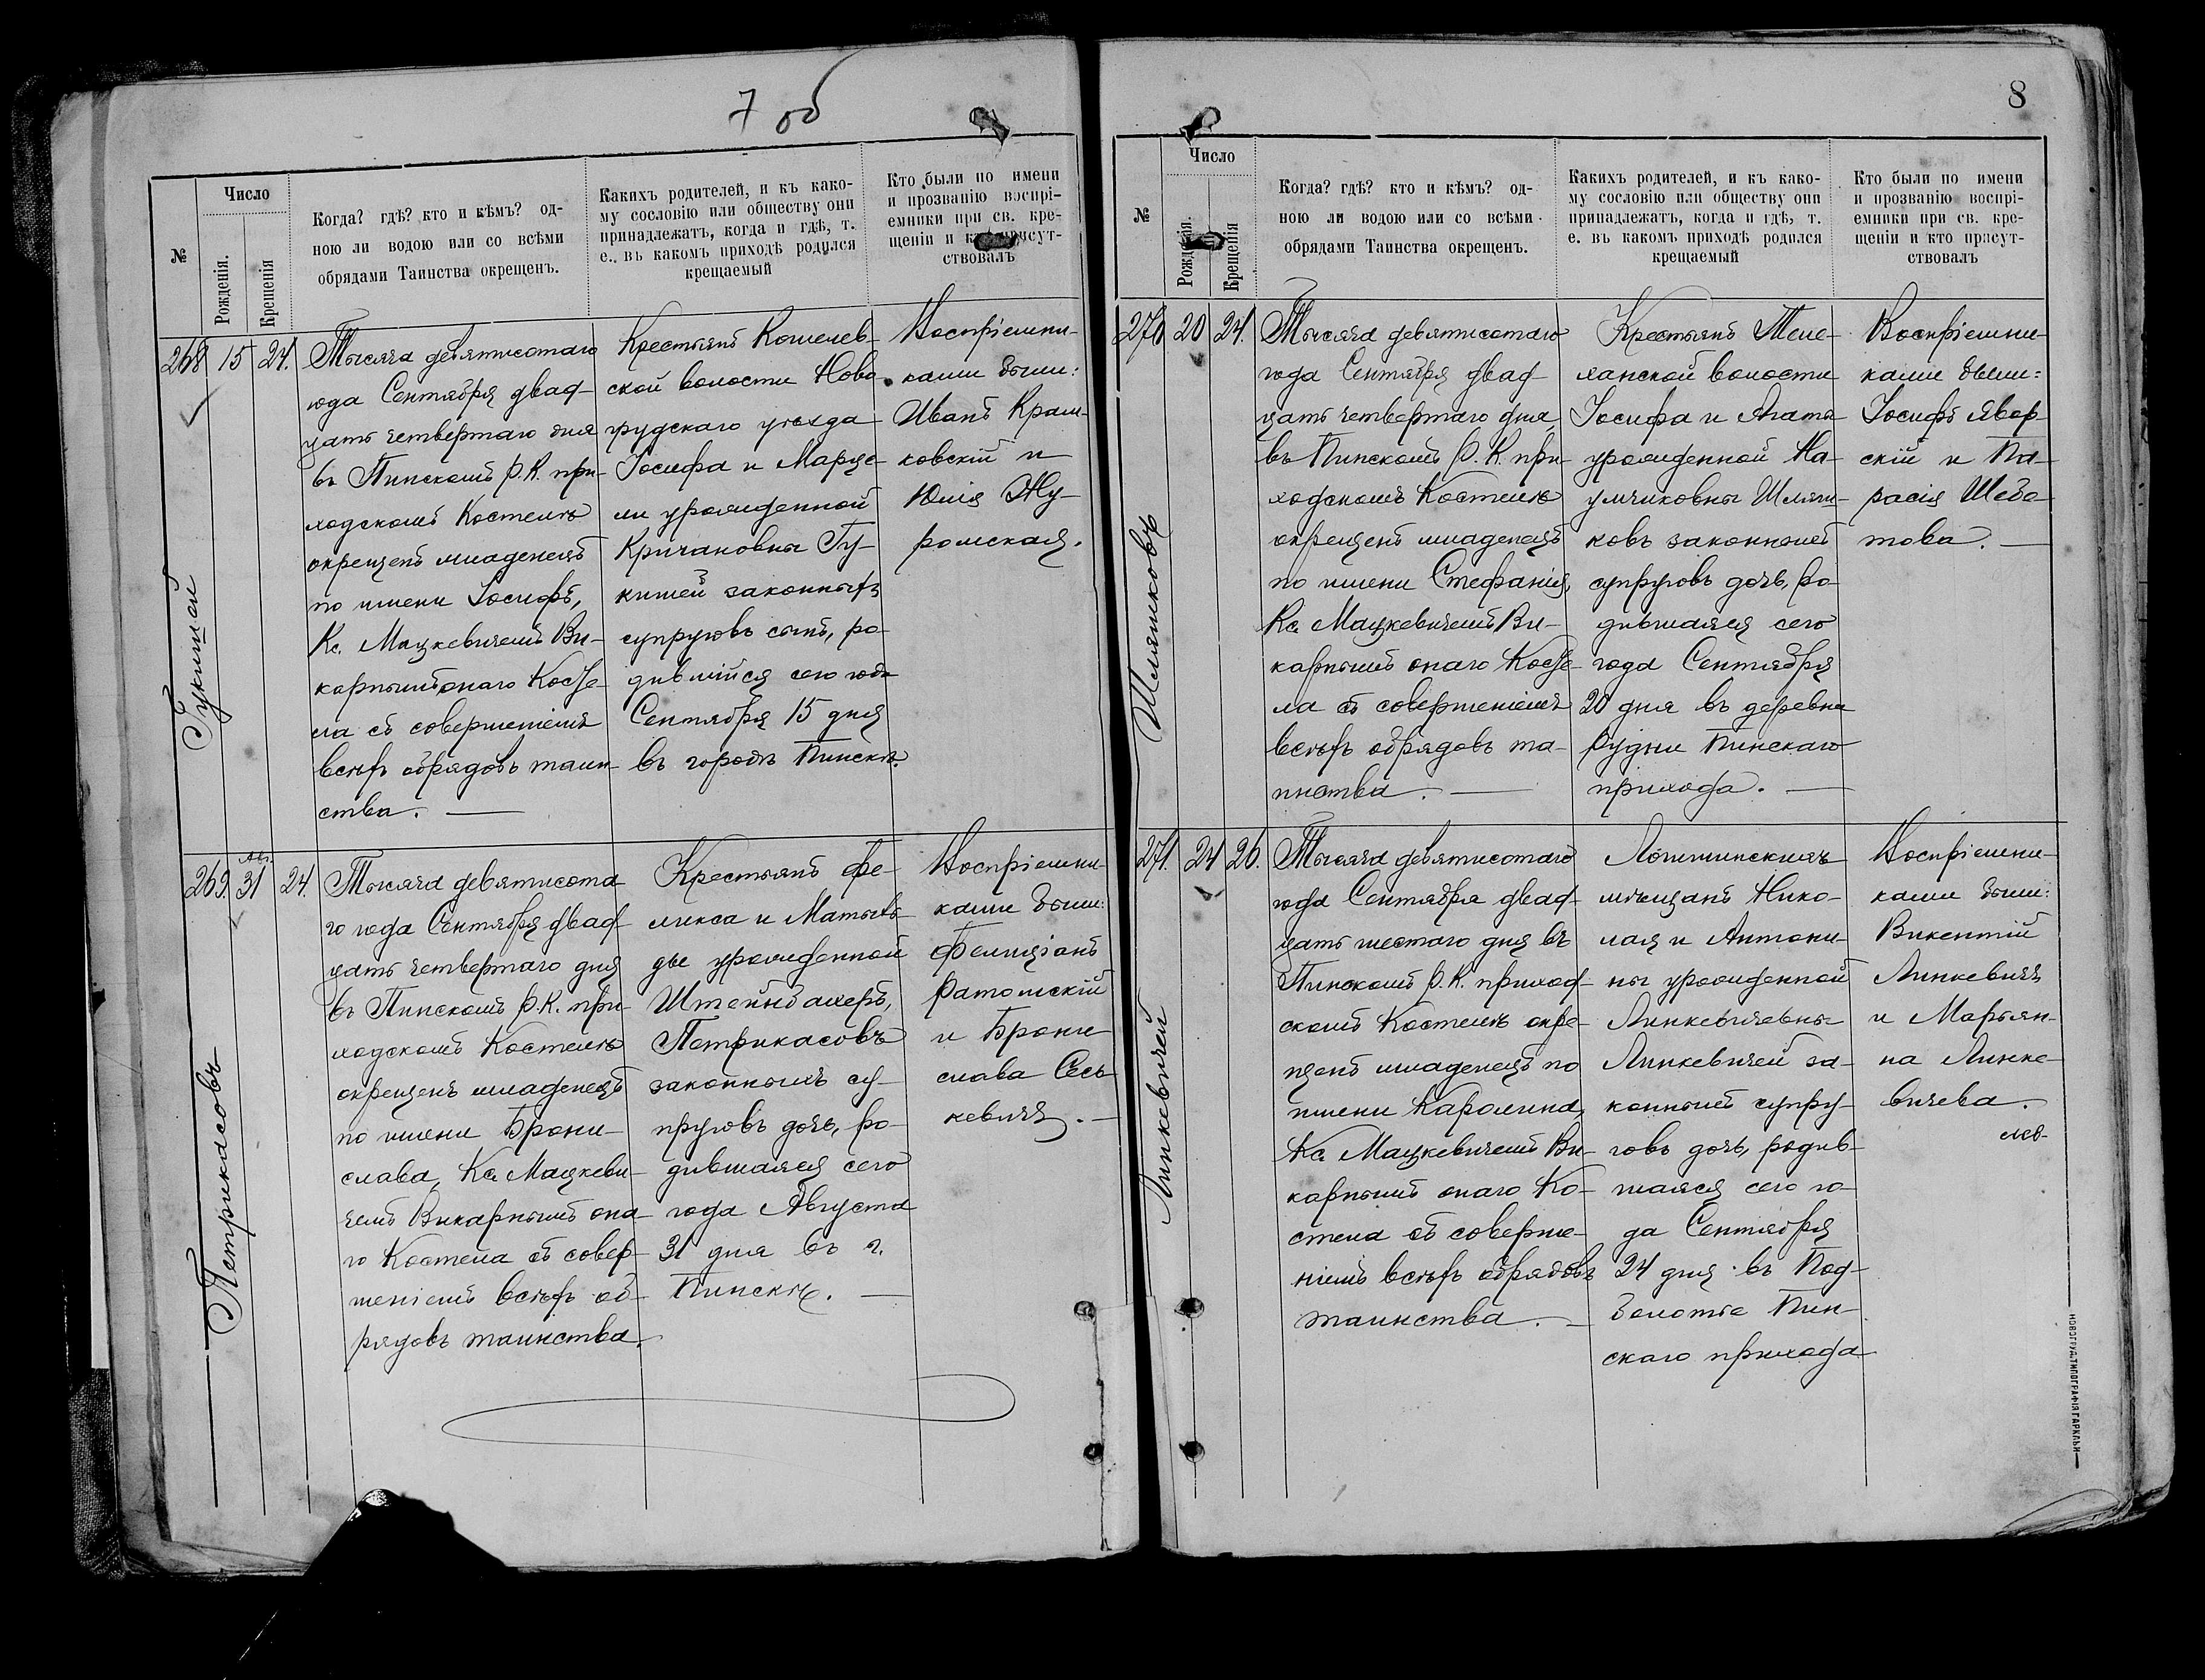 7 об
№
Число
Рожденія.
Крещенія
Когда? гдѣ? кто и кѣмъ? од-
ною ли водою или со всѣми
обрядами Таинства окрещенъ.
Какихъ родителей, и къ како-
му сословію или обществу они
принадлежатъ, когда и гдѣ, т.
е. въ какомъ приходѣ родился
крещаемый
Кто были по имени
и прозванію воспрі-
емники при св. кре-
щеніи и кто присут-
ствовалъ
268
15
24.
Гукишей
Тысяча девятисотаго
года Сентября двад-
цать четвертаго дня
въ Пинскомъ Р. К. при-
ходскомъ Костелѣ
окрещенъ младенецъ
по имени Іосифъ,
Кс. Мацкевичемъ Ви-
карнымъ онаго Косте-
ла съ совершеніемъ
всѣхъ обрядовъ таин-
ства.
Крестьянъ Кошелев-
ской волости Ново-
грудскаго уѣзда
Іосифа и Марце-
ли урожденной
Кричановны Гу-
кишей законныхъ
супруговъ сынъ, ро-
дившійся сего года
Сентября 15 дня
въ городѣ Пинскѣ.
Воспріемни-
ками были:
Иванъ Крам-
ковскій и
Юлія Жу-
ромская.
269.
Авг.
31
24.
Петрикасовъ
Тысяча девятисота
го года Сентября двад
цать четвертаго дня
въ Пинскомъ Р. К. при-
ходскомъ Костелѣ
окрещенъ младенецъ
по имени Брони-
слава, Кс. Мацкеви-
чемъ Викарнымъ она-
го Костела съ совер-
шеніемъ всѣхъ об-
рядовъ таинства.
Крестьянъ Фе-
ликса и Матыль-
ды урожденной
Штейнбахеръ,
Петрикасовъ
законныхъ су-
пруговъ дочь, ро-
дившаяся сего
года Августа
31 дня въ г.
Пинскѣ.
Воспріемни-
ками были:
Фелиціанъ
Ратомскій
и Брони
слава Сесь
кевичъ.
8
№
Число
Рожденія.
Крещенія
Когда? гдѣ? кто и кѣмъ? од-
ною ли водою или со всѣми
обрядами Таинства окрещенъ.
Какихъ родителей, и къ како-
му сословію или обществу они
принадлежатъ, когда и гдѣ, т.
е. въ какомъ приходѣ родился
крещаемый
Кто были по имени
и прозванію воспрі-
емники при св. кре-
щеніи и кто присут-
ствовалъ
270
20
24.
Шляшковъ
Тысяча девятисотаго
года Сентября двад-
цать четвертаго дня
въ Пинскомъ Р. К. при-
ходскомъ Костелѣ
окрещенъ младенецъ
по имени Стефанія,
Кс. Мацкевичемъ Ви-
карнымъ онаго Косте-
ла съ совершеніемъ
всѣхъ обрядовъ та-
инства.
Крестьянъ Теле-
ханской волости
Іосифа и Агаты
урожденной На-
умчиковны Шляш-
ковъ законныхъ
супруговъ дочь, ро-
дившаяся сего
года Сентября
20 дня въ деревнѣ
Рудни Пинскаго
прихода.
Воспріемни-
ками были:
Іосифъ Явор-
скій и Па-
расія Шебо-
това.
271.
24
26.
Линкевичей
Тысяча девятисотаго
года Сентября двад-
цать шестаго дня въ
Пинскомъ Р. К. приход-
скомъ Костелѣ окре-
щенъ младенецъ по
имени Каролина,
Кс. Мацкевичемъ Ви-
карнымъ онаго Ко-
стела съ соверше-
ніемъ всѣхъ обрядовъ
таинства.
Логишинскихъ
мѣщанъ Нико-
лая и Антони-
ны урожденной
Линкевичевны
Линкевичей за-
конныхъ супру-
говъ дочь, родив-
шаяся сего го-
да Сентября
24 дня въ Под-
болотье Пин-
скаго прихода
Воспріемни-
ками были:
Викентій
Линкевичъ
и Марьян-
на Линке-
вичева.
НОВОГРУД. ТИПОГРАФІЯ ГАРКАВИ